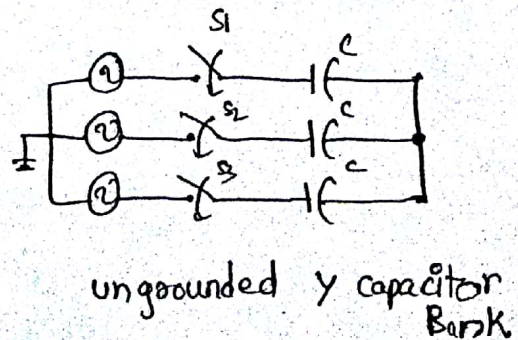 S1
C
S2
C
S3
C
ungrounded Y capacitor
Bank